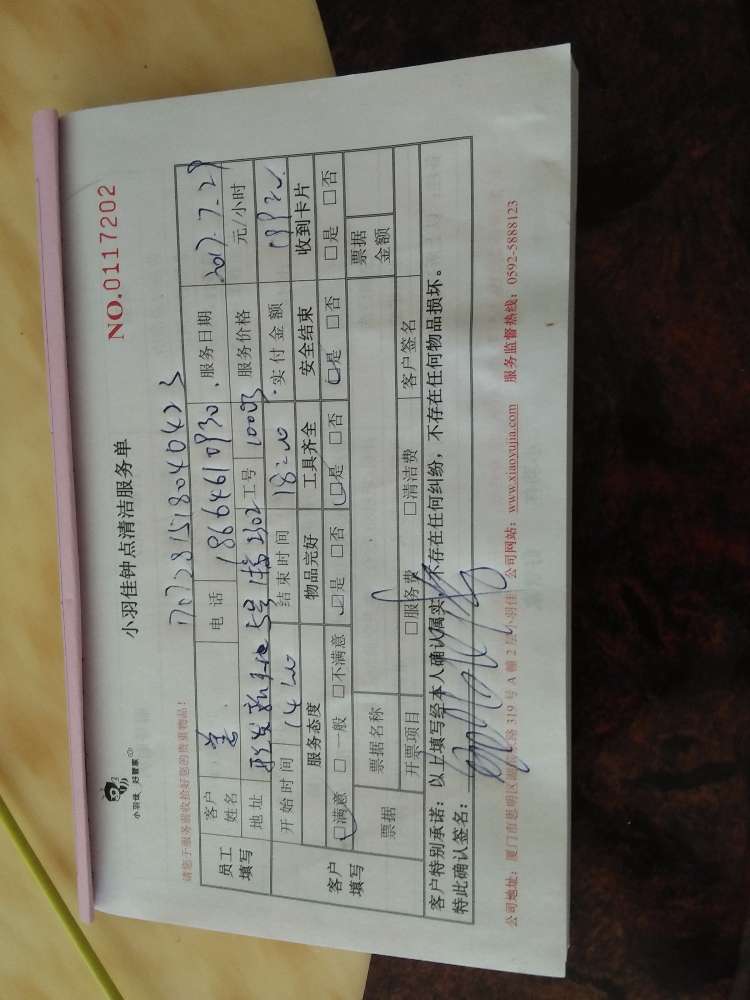 小羽佳 好管家
小羽佳钟点清洁服务单
NO.0117202
请您于服务前收拾好您的贵重物品!
员工填写 客户姓名 电话 18664610930 服务日期 2017.7.29
地址 5号 2302 工号 10003 服务价格 元/小时
开始时间 14:00 结束时间 18:00 实付金额
客户填写 服务态度 物品完好 工具齐全 安全结束 收到卡片
□满意 □一般 □不满意 □是 □否 □是 □否 □是 □否 □是 □否
票据 票据名称 票据金额
开票项目 □服务费 □清洁费 客户签名
客户特别承诺:以上填写经本人确认属实,不存在任何纠纷,不存在任何物品损坏。
特此确认签名:
公司地址:厦门市思明区 路 319 号 A 幢 2 层小羽佳 公司网站:www.xiaoyujia.com 服务监督热线:0592-5888123